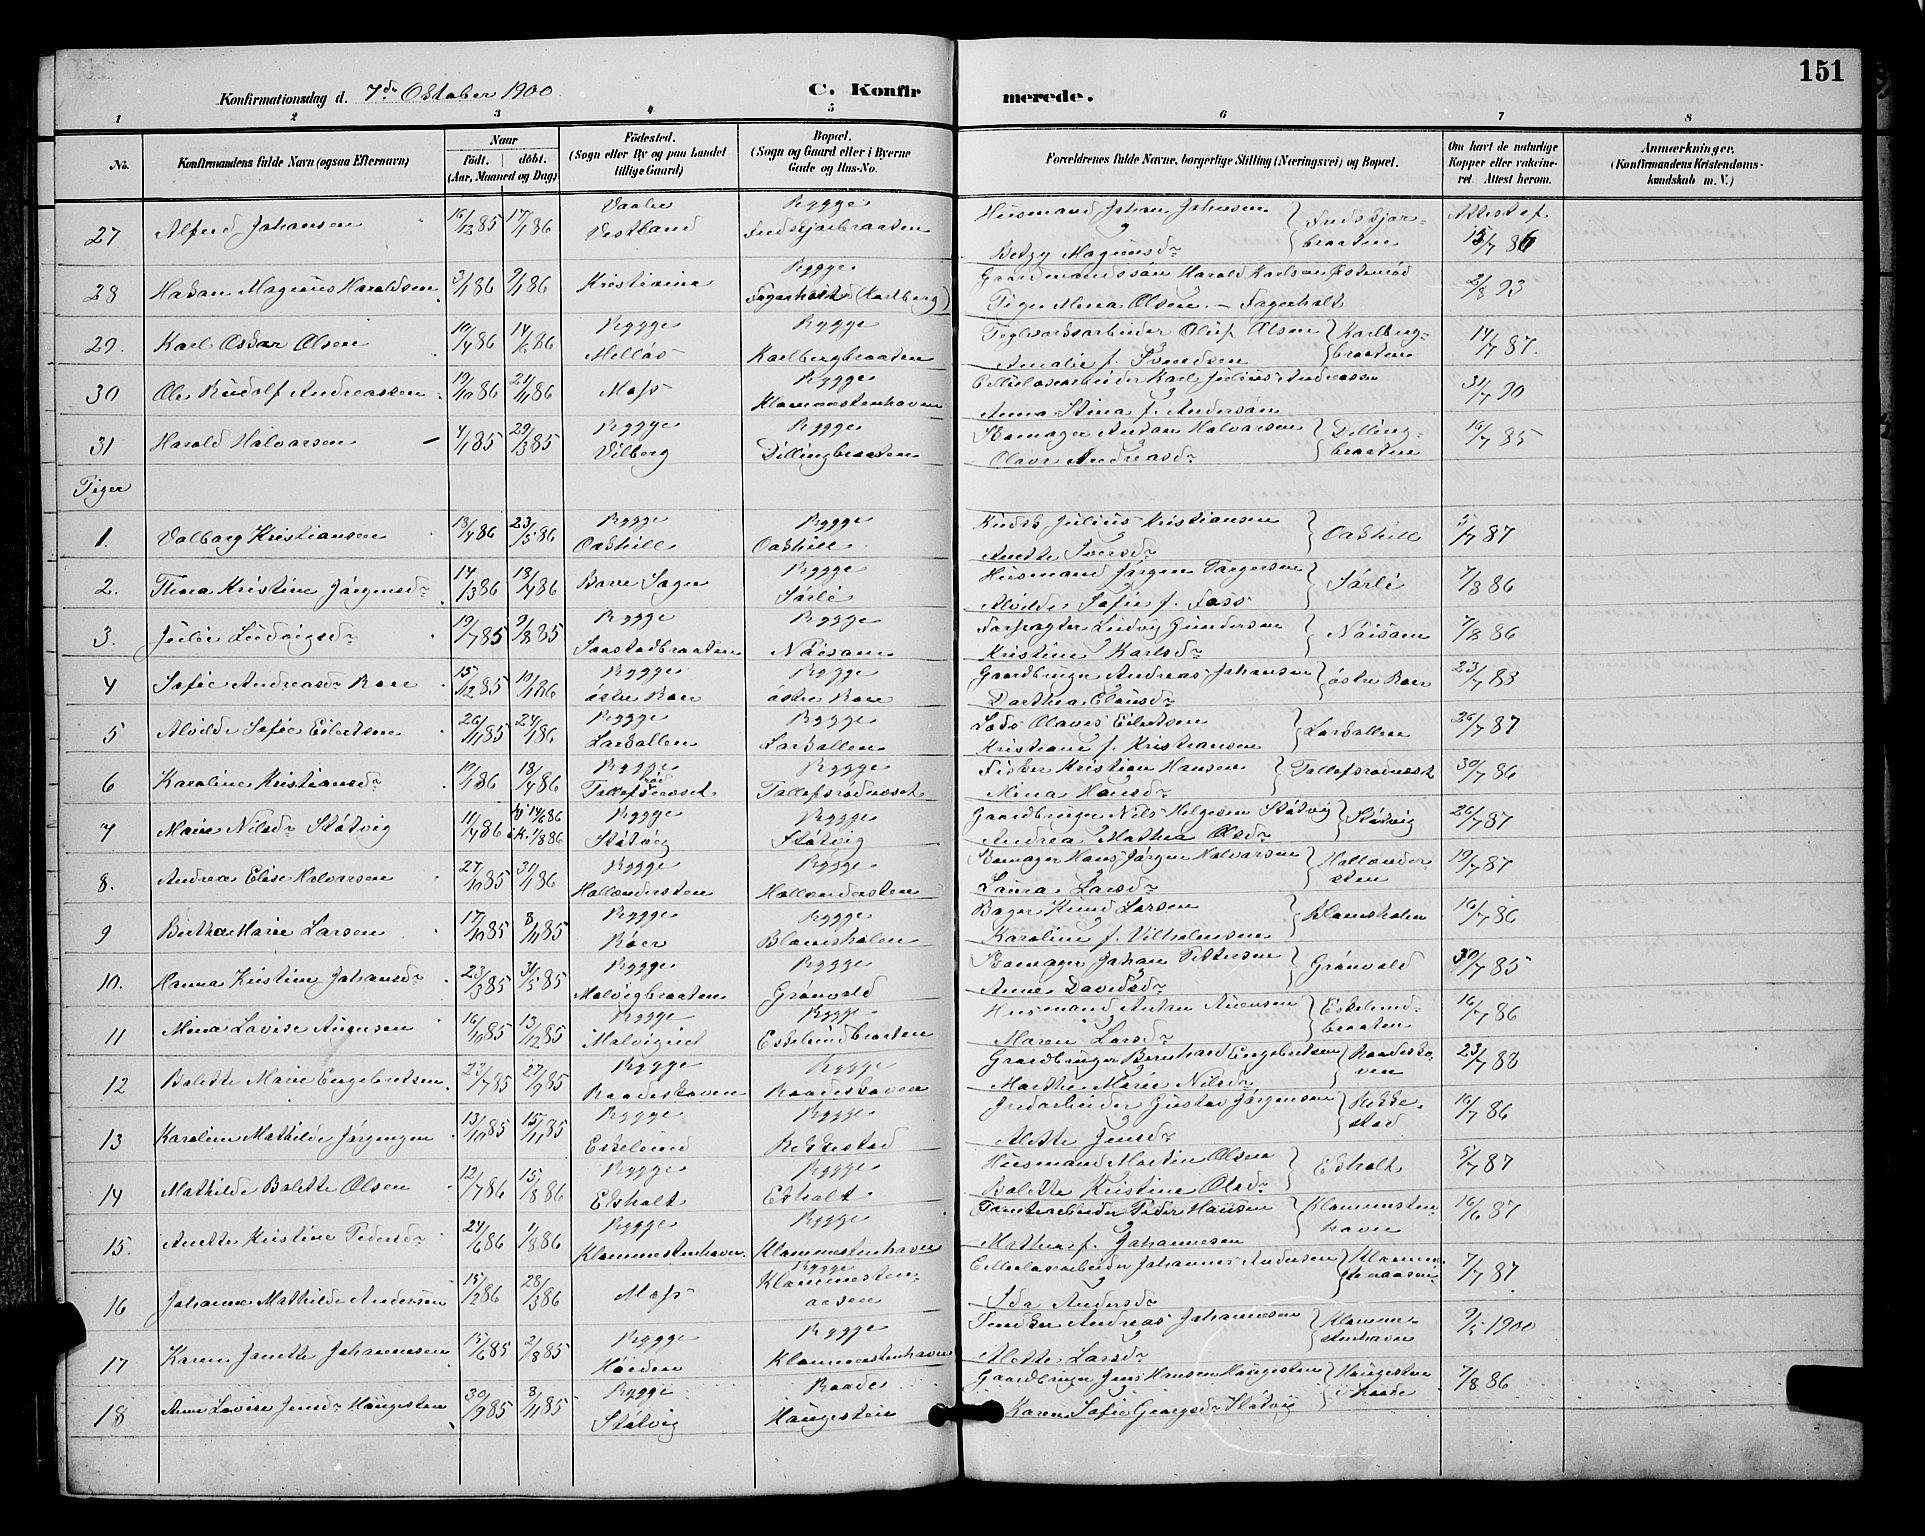 151
Konfirmationsdag d. 7de Oktober 1900
C. Konfirmerede.
1 2 3 4 5 6 7 8
No. | Konfirmandens fulde Navn (ogsaa Efternavn) | Naar födt. döbt. (Aar, Maaned og Dag) | Födested. (Sogn eller By og paa Landet tillige Gaard) | Bopæl. (Sogn og Gaard eller i Byerne Gade og Hus-No. | Forældrenes fulde Navne, borgerlige Stilling (Næringsvei) og Bopæl. | Om havt de naturlige Kopper eller vakcineret. Attest herom. | Anmærkninger. (Konfirmandens Kristendomskundskab m. V.)
27 Alfred Johansen 16/12 85 17/1 86 Vaaler Vestland Rygge Fredskjærbraaten Husmand Johan Johnsen Betzy Magnusdr Fredskjærbraaten Attest af 15/7 86
28 Hakan Magnus Haraldsen 3/1 86 9/1 86 Kristiania Rygge Fagerholt (Karlberg) Gaardmandssøn Harald Karlsen Østenrød Pige Mina Olsen – Fagerholt 2/8 93
29. Karl Oskar Olsen 10/4 86 14/6 86 Rygge Melløs Rygge Karlbergbraaten Teglværksarbeider Oluf Olsen Amalie f. Svendsen Karlbergbraaten 14/7 87.
30 Ole Rudolf Andreassen 19/10 86 21/11 86 Moss Rygge Klommestenhaven Cellulosearbeider Karl Julius Andreassen Anna Stina f. Anderson 31/7 90
31 Harald Halvorsen 4/1 85 29/3 85 Rygge Vilberg Rygge Dillingbraaten Skomager Anton Halvorsen Olava Andreasdr Dillingbraaten 16/7 85
Piger
1. Valborg Kristiansen 18/4 86 23/5 86 Rygge Oakhill Rygge Oakhill Kudsk Julius Kristiansen Anette Iversdr Oakhill 5/7 87
2. Thora Kristine Jörgensdr 14/3 86 18/4 86 Borre Sogn Rygge Sørli Husmand Jörgen Torgersen Alvilde Sofie f. Foss Sørli 7/8 86
3. Julie Ludvigsdr 19/7 85 9/8 85 Rygge Saastadbraaten Rygge Nöisom Forpagter Ludvig Gundersen Kristine Karlsdr Nöisom 7/8 86
4 Sofie Andreasdr Roer 15/12 85 10/1 86 Rygge östre Roer Rygge östre Roer Gaardbruger Andreas Johansen Dorthea Clausdr östre Roer 23/7 83
5 Alvilde Sofie Eilertsen 26/11 85 24/1 86 Rygge Larkollen Rygge Larkollen Lods Olaves Eilertsen Kristiane f. Kristiansen Larkollen 26/7 87
6 Karoline Kristiansdr 19/1 86 18/4 86 Rygge Tollefsrødneset Rygge Tollefsrødneset Fisker Kristian Hansen Mina Hansdr Tollefsrødneset 30/7 86
7 Marie Nilsdr Støtvig 11/4 86 hj 14/6 86 i K. 1/8 86 Rygge Støtvig Rygge Støtvig Gaardbruger Nils Helgesen Støtvig Andrea Mathea Olsdr Støtvig 26/7 87
8. Andrea Elise Halvorsen 27/10 85 31/1 86 Rygge Hollendersten Rygge Hollendersten Skomager Hans Jörgen Halvorsen Laura Larsdr Hollendersten 19/7 87
9 Berthe Marie Larsen 17/10 85 8/11 85 Rygge Röer Rygge Blomsholen Bager Knud Larsen Karoline f. Vilhelmsen Klomsholen 16/7 86
10. Hanna Kristine Johansdr 23/3 85 31/5 85 Rygge Molvigbraaten Rygge Grönvold Skomager Johan Pettersen Anne Davidsdr Grönvold 30/7 85
11 Mina Lovise Auensen 16/10 85 13/12 85 Rygge Molvigeiet Rygge Eskelundbraaten Husmand Anton Auensen Maren Larsdr Eskelundbraaten 16/7 86
12 Bolette Marie Engebretsen 23/7 85 27/9 85 Rygge Raadeskoven Rygge Raadeskoven Gaardbruger Bernhard Engebretsen Marthe Marie Nilsdr Raadeskoven 23/7 88
13 Karoline Mathilde Jørgensen 13/10 85 15/11 85 Rygge Eskelund Rygge Rekkestad Jordarbeider Gustav Jörgensen Alette Jensdr Rekkestad 16/7 86
14 Mathilde Bolette Olsen 12/7 86 15/8 86 Rygge Ekholt Rygge Ekholt Husmand Martin Olsen Bolette Kristine Olsdr Ekholt 5/7 87
15. Anette Kristine Pedersdr 24/6 86 1/8 86 Rygge Klommestenhaven Rygge Klommestenhaven Tomtearbeider Peder Hansen Mathea f. Johannesen Klommestenhaven 16/6 87
16 Johanne Mathilde Andersen 15/2 86 28/3 86 Moss Rygge Klommestenaasen Cellulosearbeider Johannes Andersen Ida Andersdr Klommestenaasen 7/7 87.
17 Karen Janette Johannesen 15/6 85 2/8 85 Rygge Høiden Rygge Klommestenhaven Snedker Andreas Johannesen Alette Larsdr Klommestenhaven 9/5 1900
18 Anne Lovise Jensdr Haugesten 30/9 85 8/11 85 Rygge Støtvig Raade Haugesten Gaardbruger Jens Hansen Haugesten Karen Sofie Georgsdr Støtvig Haugesten i Raade 7/8 86